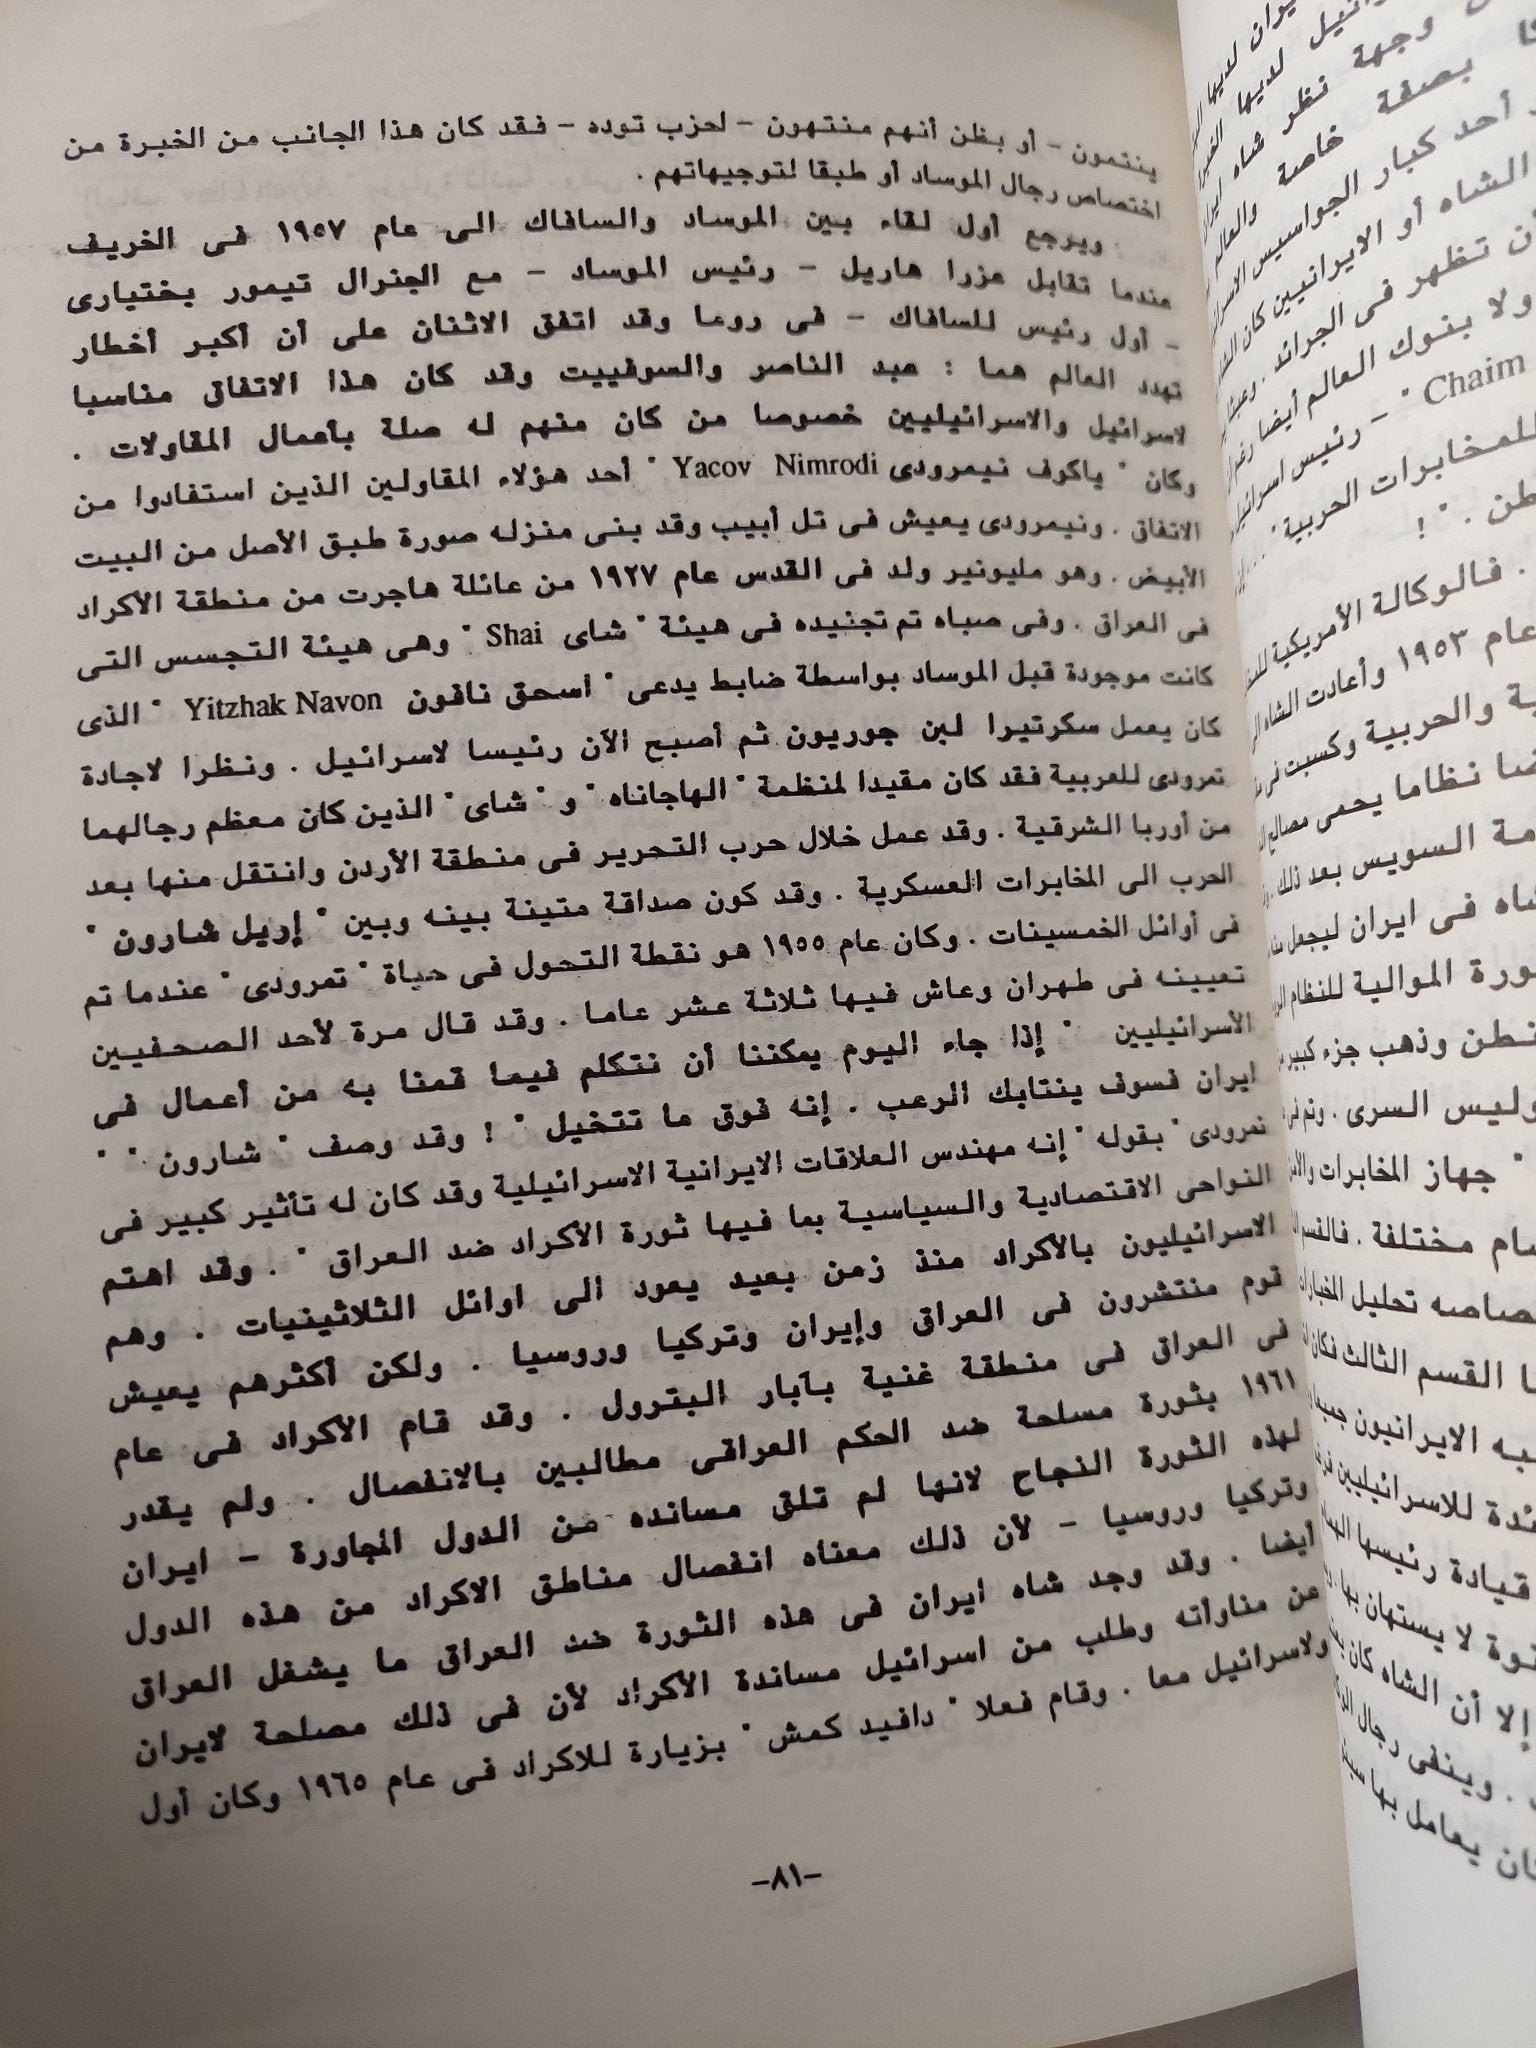 ينتمون – أو بظن أنهم منتهون – لحزب توده – فقد كان هذا الجانب من الخبرة من
اختصاص رجال الموساد أو طبقا لتوجيهاتهم .
ويرجع أول لقاء بين الموساد والسافاك الى عام ١٩٥٧ فى الخريف
عندما تقابل عزرا هاريل – رئيس الموساد – مع الجنرال تيمور بختيارى
– أول رئيس للسافاك – فى روما وقد اتفق الاثنان على أن أكبر أخطار
تهدد العالم هما : عبد الناصر والسوفييت وقد كان هذا الاتفاق مناسبا
لاسرائيل والاسرائيليين خصوصا من كان منهم له صلة بأعمال المقاولات .
وكان " ياكوف نيمرودى Yacov Nimrodi " أحد هؤلاء المقاولين الذين استفادوا من
الاتفاق . ونيمرودى يعيش فى تل أبيب وقد بنى منزله صورة طبق الأصل من البيت
الأبيض . وهو مليونير ولد فى القدس عام ١٩٢٧ من عائلة هاجرت من منطقة الأكراد
فى العراق . وفى صباه تم تجنيده فى هيئة " شاى Shai " وهى هيئة التجسس التى
كانت موجودة قبل الموساد بواسطة ضابط يدعى " اسحق نافون Yitzhak Navon " الذى
كان يعمل سكرتيرا لبن جوريون ثم أصبح الآن رئيسا لاسرائيل . ونظرا لاجادة
نمرودى للعربية فقد كان مقيدا لمنظمة " الهاجاناه " و " شاى " الذين كان معظم رجالهما
من أوربا الشرقية . وقد عمل خلال حرب التحرير فى منطقة الأردن وانتقل منها بعد
الحرب الى المخابرات العسكرية . وقد كون صداقة متينة بينه وبين " إريل شارون "
فى أوائل الخمسينات . وكان عام ١٩٥٥ هو نقطة التحول فى حياة " نمرودى " عندما تم
تعيينه فى طهران وعاش فيها ثلاثة عشر عاما . وقد قال مرة لأحد الصحفيين
الأسرائيليين " إذا جاء اليوم يمكننا أن نتكلم فيما قمنا به من أعمال فى
ايران فسوف ينتابك الرعب . إنه فوق ما تتخيل " ! وقد وصف " شارون " "
نمرودى " بقوله " إنه مهندس العلاقات الايرانية الاسرائيلية وقد كان له تأثير كبير فى
النواحى الاقتصادية والسياسية بما فيها ثورة الأكراد ضد العراق " . وقد اهتم
الاسرائيليون بالأكراد منذ زمن بعيد يعود الى اوائل الثلاثينيات . وهم
قوم منتشرون فى العراق وإيران وتركيا وروسيا . ولكن أكثرهم يعيش
فى العراق فى منطقة غنية بآبار البترول . وقد قام الأكراد فى عام
١٩٦١ بثورة مسلحة ضد الحكم العراقى مطالبين بالانفصال . ولم يقدر
لهذه الثورة النجاح لانها لم تلق مسانده من الدول المجاورة – ايران
وتركيا وروسيا – لأن ذلك معناه انفصال مناطق الاكراد من هذه الدول
أيضا . وقد وجد شاه ايران فى هذه الثورة ضد العراق ما يشغل العراق
من مناوأته وطلب من اسرائيل مساندة الأكراد لأن فى ذلك مصلحة لايران
ولاسرائيل معا . وقام فعلا " دافيد كمش " بزيارة للاكراد فى عام ١٩٦٥ وكان أول
–٨١–
يران لديها
لديها
وجهة نظر شاه ايران
بصفة خاصة والعالم
أحد كبار الجواسيس
الشاه أو الايرانيين كان
تظهر فى الجرائد .
ولا بنوك العالم أيضا
Chaim " – رئيس
للمخابرات الحربية "
. " !
. فالوكالة الأمريكية
عام ١٩٥٣ وأعادت الشاه
والحربية وكسبت فى
نظاما يحمى مصالح
السويس بعد ذلك
فى ايران ليجعل
الموالية للنظام
وذهب جزء كبير
السرى . وتم فى
" جهاز المخابرات
مختلفة . فالقسم
تحليل
القسم الثالث فكان
الايرانيون
للاسرائيليين
قيادة رئيسها
لا يستهان بها
إلا أن الشاه كان
. وينفى رجال
يعامل بها